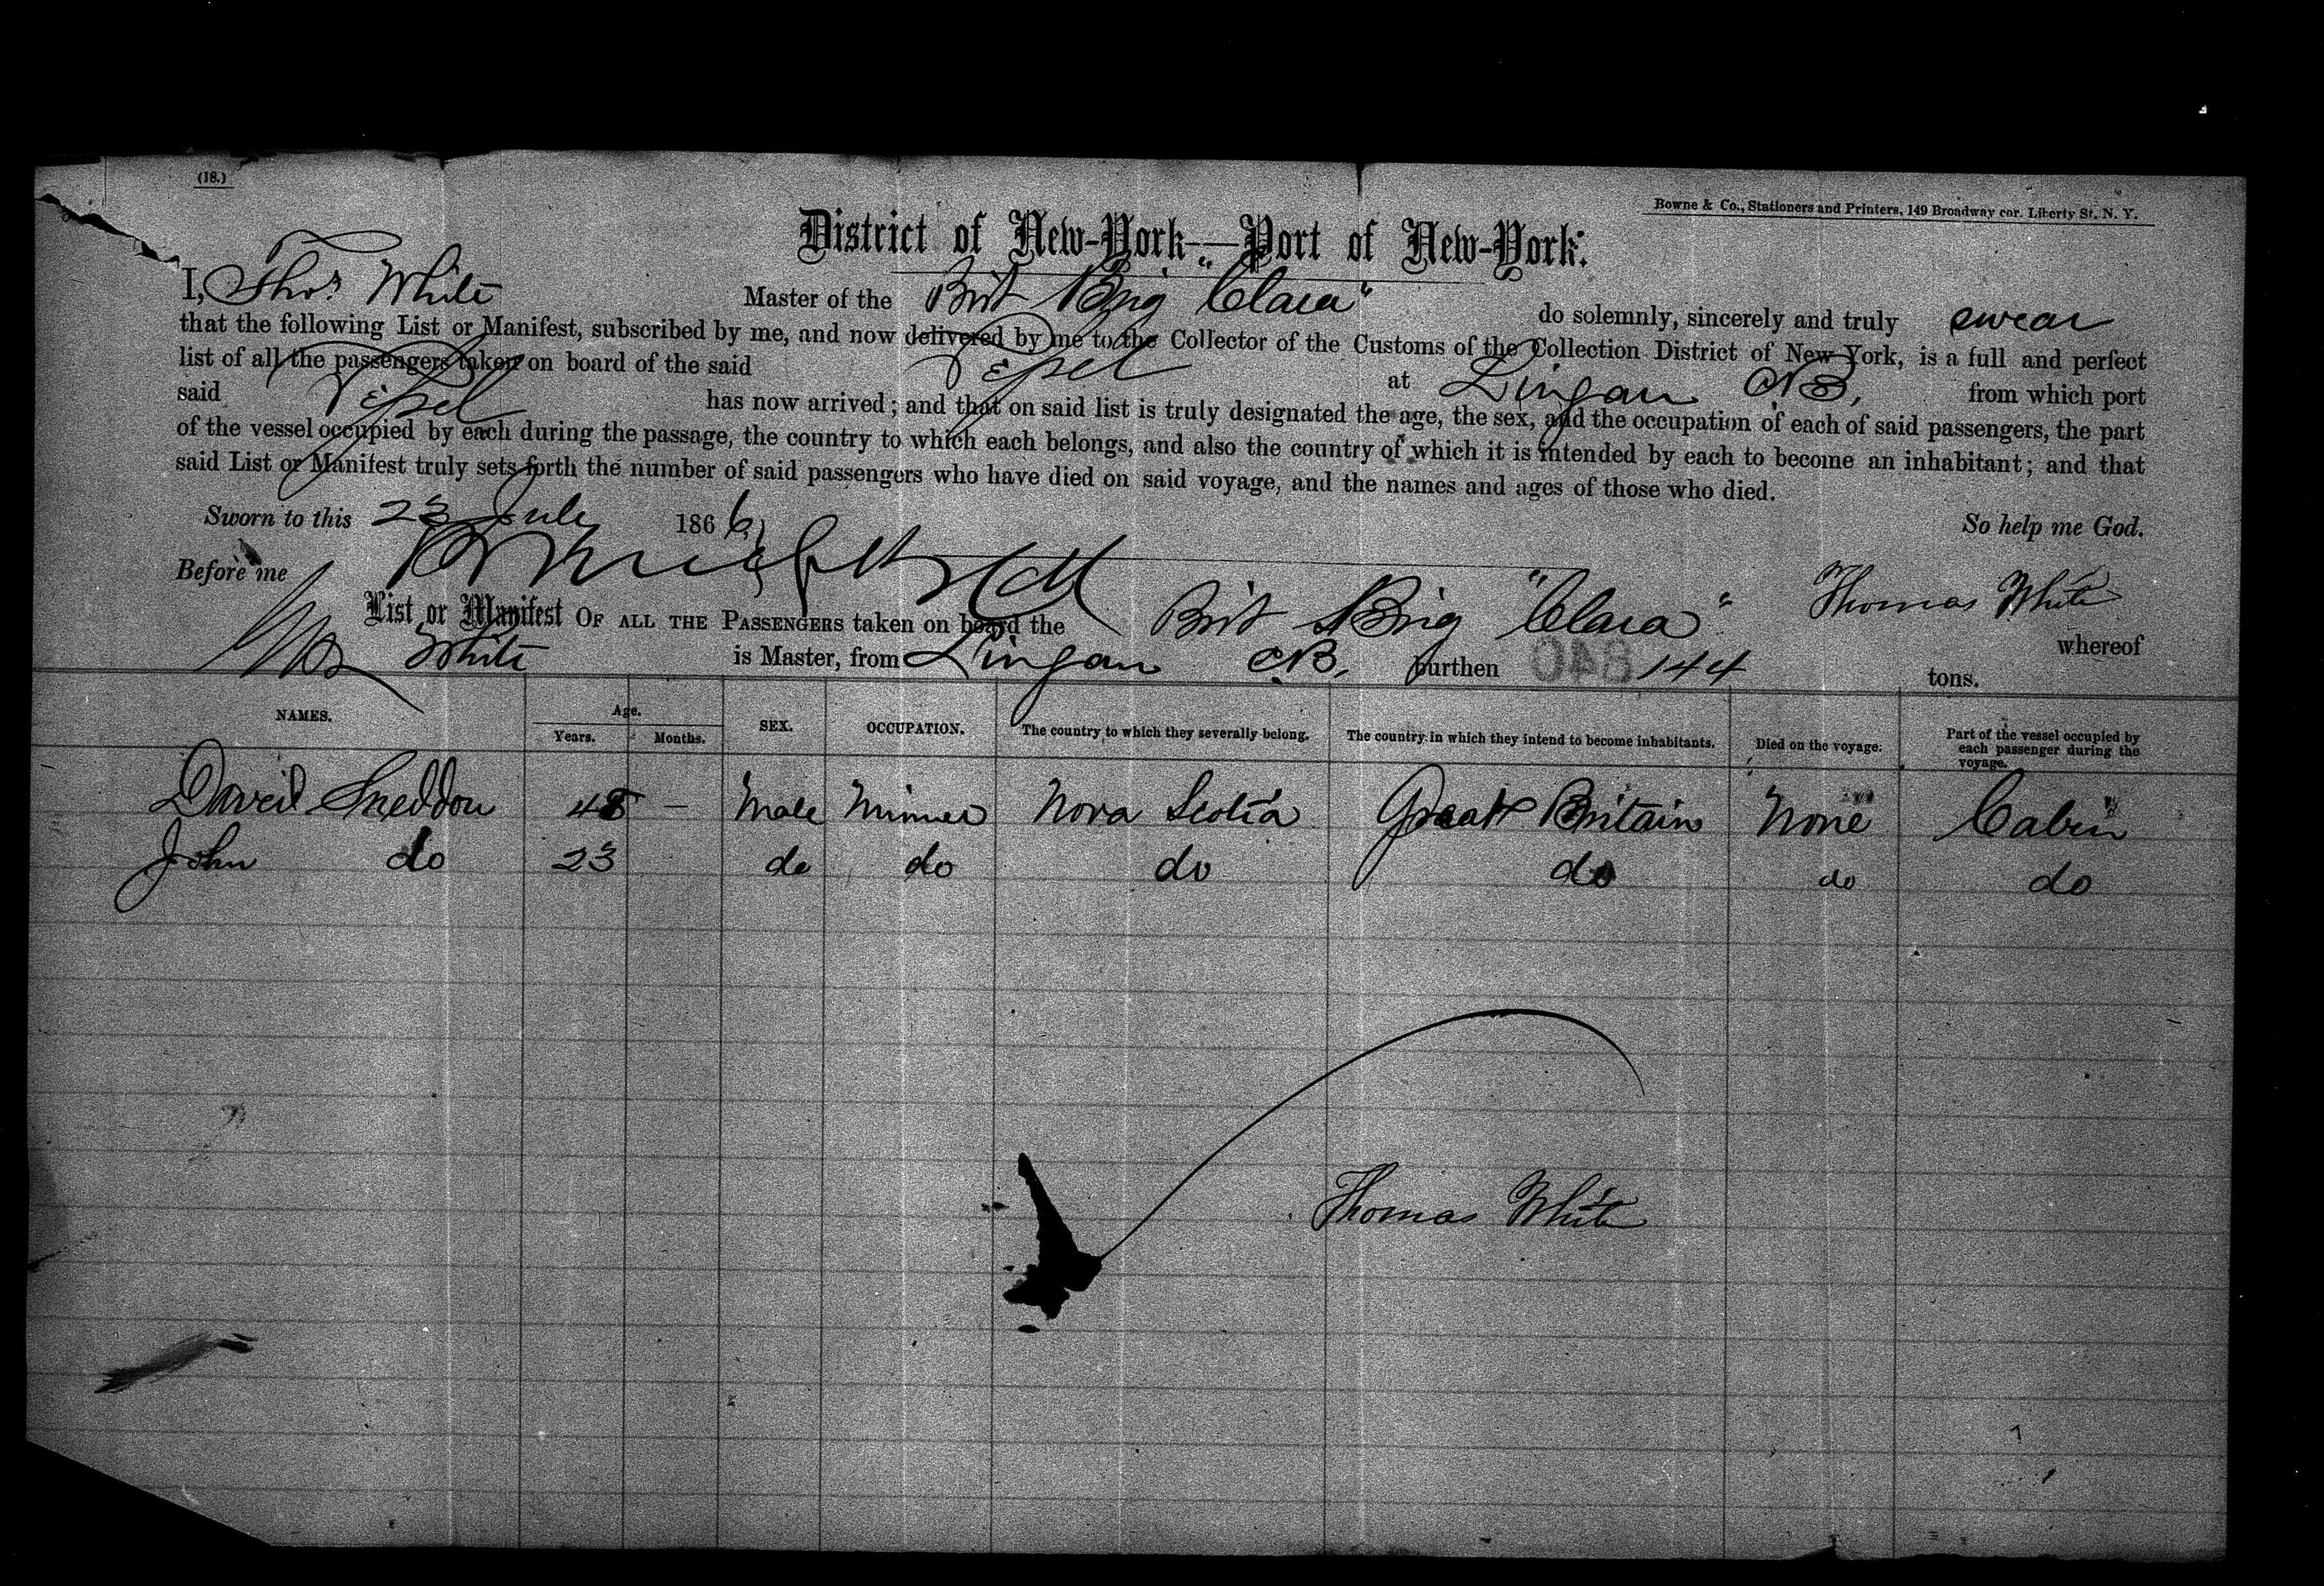 (18.)
Bowne & Co., Stationers and Printers, 149 Broadway cor. Liberty St. N. Y.
District of New-York—Port of New-York.
I, Thos White Master of the Brit Brig "Clara" do solemnly, sincerely and truly swear
that the following List or Manifest, subscribed by me, and now delivered by me to the Collector of the Customs of the Collection District of New York, is a full and perfect
list of all the passengers taken on board of the said Vessel at Lingan C.B. from which port
said Vessel has now arrived; and that on said list is truly designated the age, the sex, and the occupation of each of said passengers, the part
of the vessel occupied by each during the passage, the country to which each belongs, and also the country of which it is intended by each to become an inhabitant; and that
said List or Manifest truly sets forth the number of said passengers who have died on said voyage, and the names and ages of those who died.
Sworn to this 23 July 1866 So help me God.
Before me Thomas White
List or Manifest OF ALL THE PASSENGERS taken on board the Brit Brig "Clara" whereof
White is Master, from Lingan C.B. burthen 144 tons.
NAMES. Age. Years. Months. SEX. OCCUPATION. The country to which they severally belong. The country in which they intend to become inhabitants. Died on the voyage. Part of the vessel occupied by each passenger during the voyage.
David Sneddon 48 — Male Minner Nova Scotia Great Britain None Cabin
John do 23 do do do do do do
Thomas White